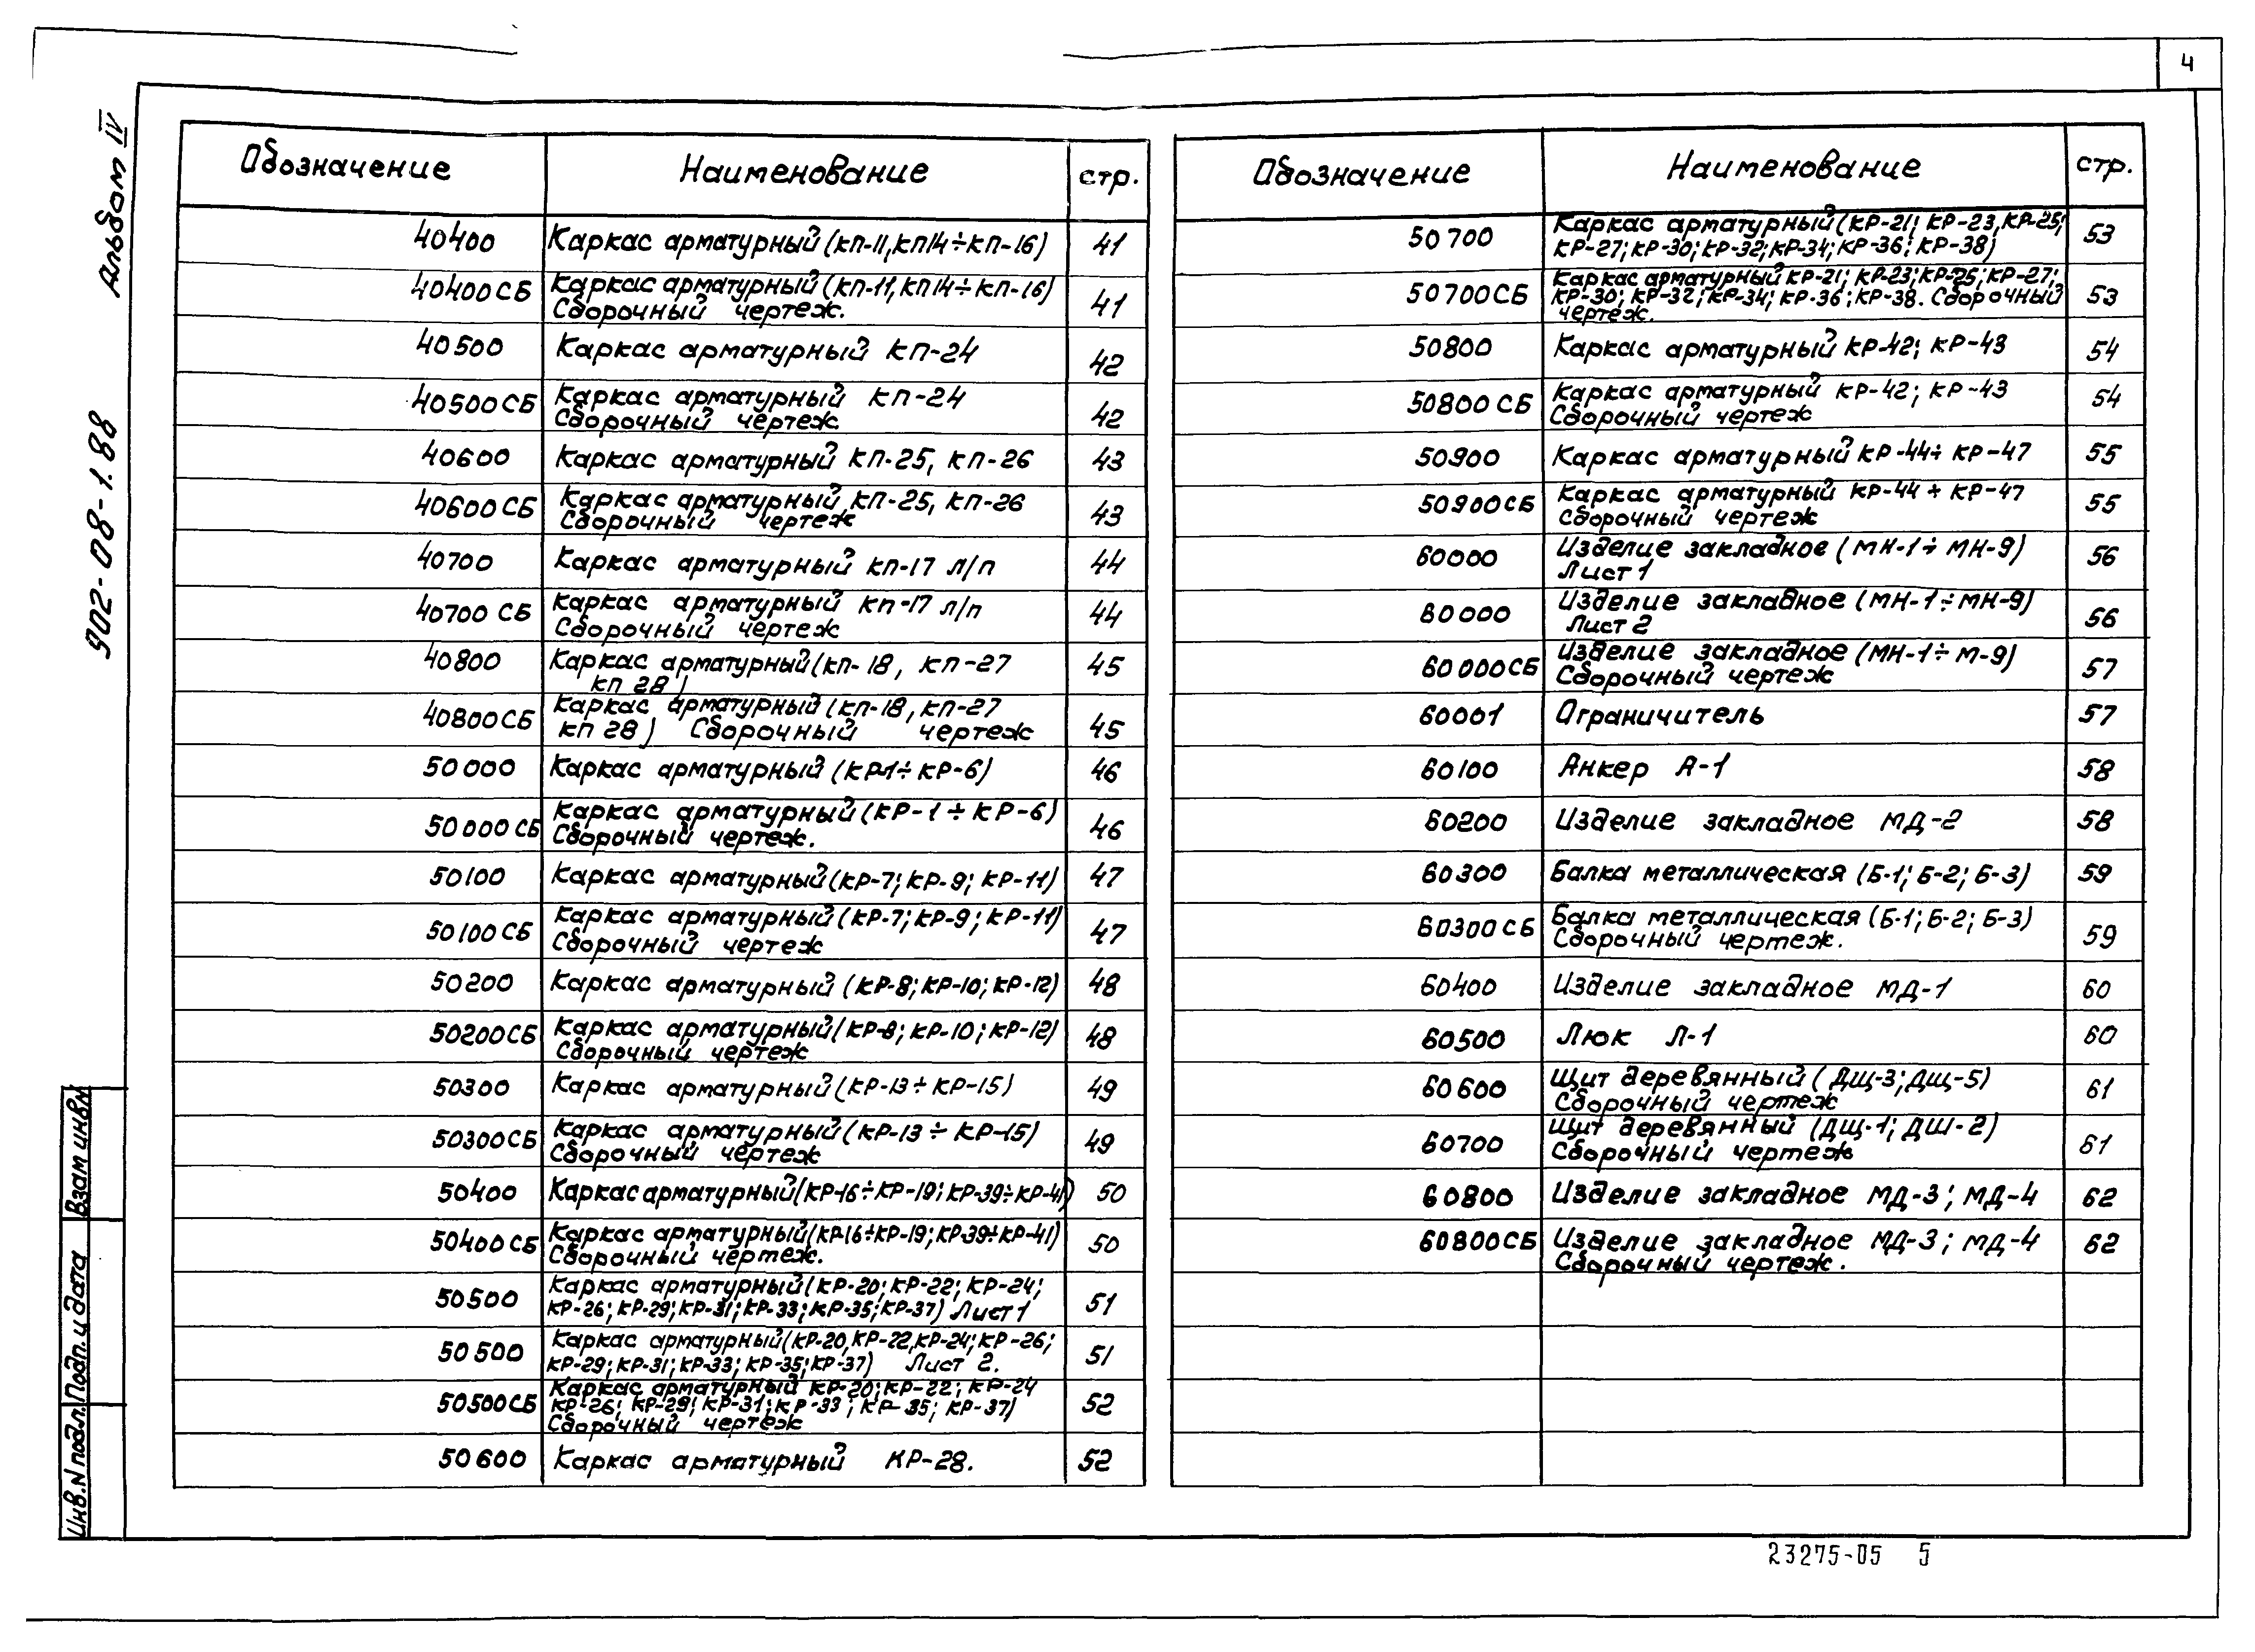 4
Альбом IV
902-08-1.88
Взам инв N
Подп. и дата
Инв. N подл.
Обозначение Наименование стр.
40400 Каркас арматурный (КП-11, КП14÷КП-16) 41
40400СБ Каркас арматурный (КП-11, КП14÷КП-16)
Сборочный чертеж. 41
40500 Каркас арматурный КП-24 42
40500СБ Каркас арматурный КП-24
Сборочный чертеж 42
40600 Каркас арматурный КП-25, КП-26 43
40600СБ Каркас арматурный КП-25, КП-26
Сборочный чертеж 43
40700 Каркас арматурный КП-17 л/п 44
40700 СБ Каркас арматурный КП-17 л/п
Сборочный чертеж 44
40800 Каркас арматурный (КП-18, КП-27
КП 28) 45
40800СБ Каркас арматурный (КП-18, КП-27
КП 28) Сборочный чертеж 45
50000 Каркас арматурный (КР-1÷КР-6) 46
50000СБ Каркас арматурный (КР-1÷КР-6)
Сборочный чертеж. 46
50100 Каркас арматурный (КР-7; КР-9; КР-11) 47
50100СБ Каркас арматурный (КР-7; КР-9; КР-11)
Сборочный чертеж 47
50200 Каркас арматурный (КР-8; КР-10; КР-12) 48
50200СБ Каркас арматурный (КР-8; КР-10; КР-12)
Сборочный чертеж 48
50300 Каркас арматурный (КР-13÷КР-15) 49
50300СБ Каркас арматурный (КР-13÷КР-15)
Сборочный чертеж 49
50400 Каркас арматурный (КР-16÷КР-19; КР-39÷КР-41) 50
50400СБ Каркас арматурный (КР-16÷КР-19; КР-39÷КР-41)
Сборочный чертеж. 50
50500 Каркас арматурный (КР-20; КР-22; КР-24;
КР-26; КР-29; КР-31; КР-33; КР-35; КР-37) Лист 1 51
50500 Каркас арматурный (КР-20, КР-22, КР-24; КР-26;
КР-29; КР-31; КР-33; КР-35; КР-37) Лист 2. 51
50500СБ Каркас арматурный КР-20; КР-22; КР-24
КР-26; КР-29; КР-31; КР-33; КР-35; КР-37)
Сборочный чертеж 52
50600 Каркас арматурный КР-28. 52
Обозначение Наименование стр.
50700 Каркас арматурный (КР-21; КР-23, КР-25;
КР-27; КР-30; КР-32; КР-34; КР-36; КР-38) 53
50700СБ Каркас арматурный КР-21; КР-23; КР-25; КР-27;
КР-30; КР-32; КР-34; КР-36; КР-38. Сборочный
чертеж. 53
50800 Каркас арматурный КР-42; КР-43 54
50800СБ Каркас арматурный КР-42; КР-43
Сборочный чертеж 54
50900 Каркас арматурный КР-44÷КР-47 55
50900СБ Каркас арматурный КР-44÷КР-47
Сборочный чертеж 55
60000 Изделие закладное (МН-1÷МН-9)
Лист 1 56
60000 Изделие закладное (МН-1÷МН-9)
Лист 2 56
60000СБ Изделие закладное (МН-1÷М-9)
Сборочный чертеж 57
60001 Ограничитель 57
60100 Анкер А-1 58
60200 Изделие закладное МД-2 58
60300 Балка металлическая (Б-1; Б-2; Б-3) 59
60300СБ Балка металлическая (Б-1; Б-2; Б-3)
Сборочный чертеж. 59
60400 Изделие закладное МД-1 60
60500 Люк Л-1 60
60600 Щит деревянный (ДЩ-3; ДЩ-5)
Сборочный чертеж 61
60700 Щит деревянный (ДЩ-1; ДШ-2)
Сборочный чертеж 61
60800 Изделие закладное МД-3; МД-4 62
60800СБ Изделие закладное МД-3; МД-4
Сборочный чертеж. 62
23275-05 5